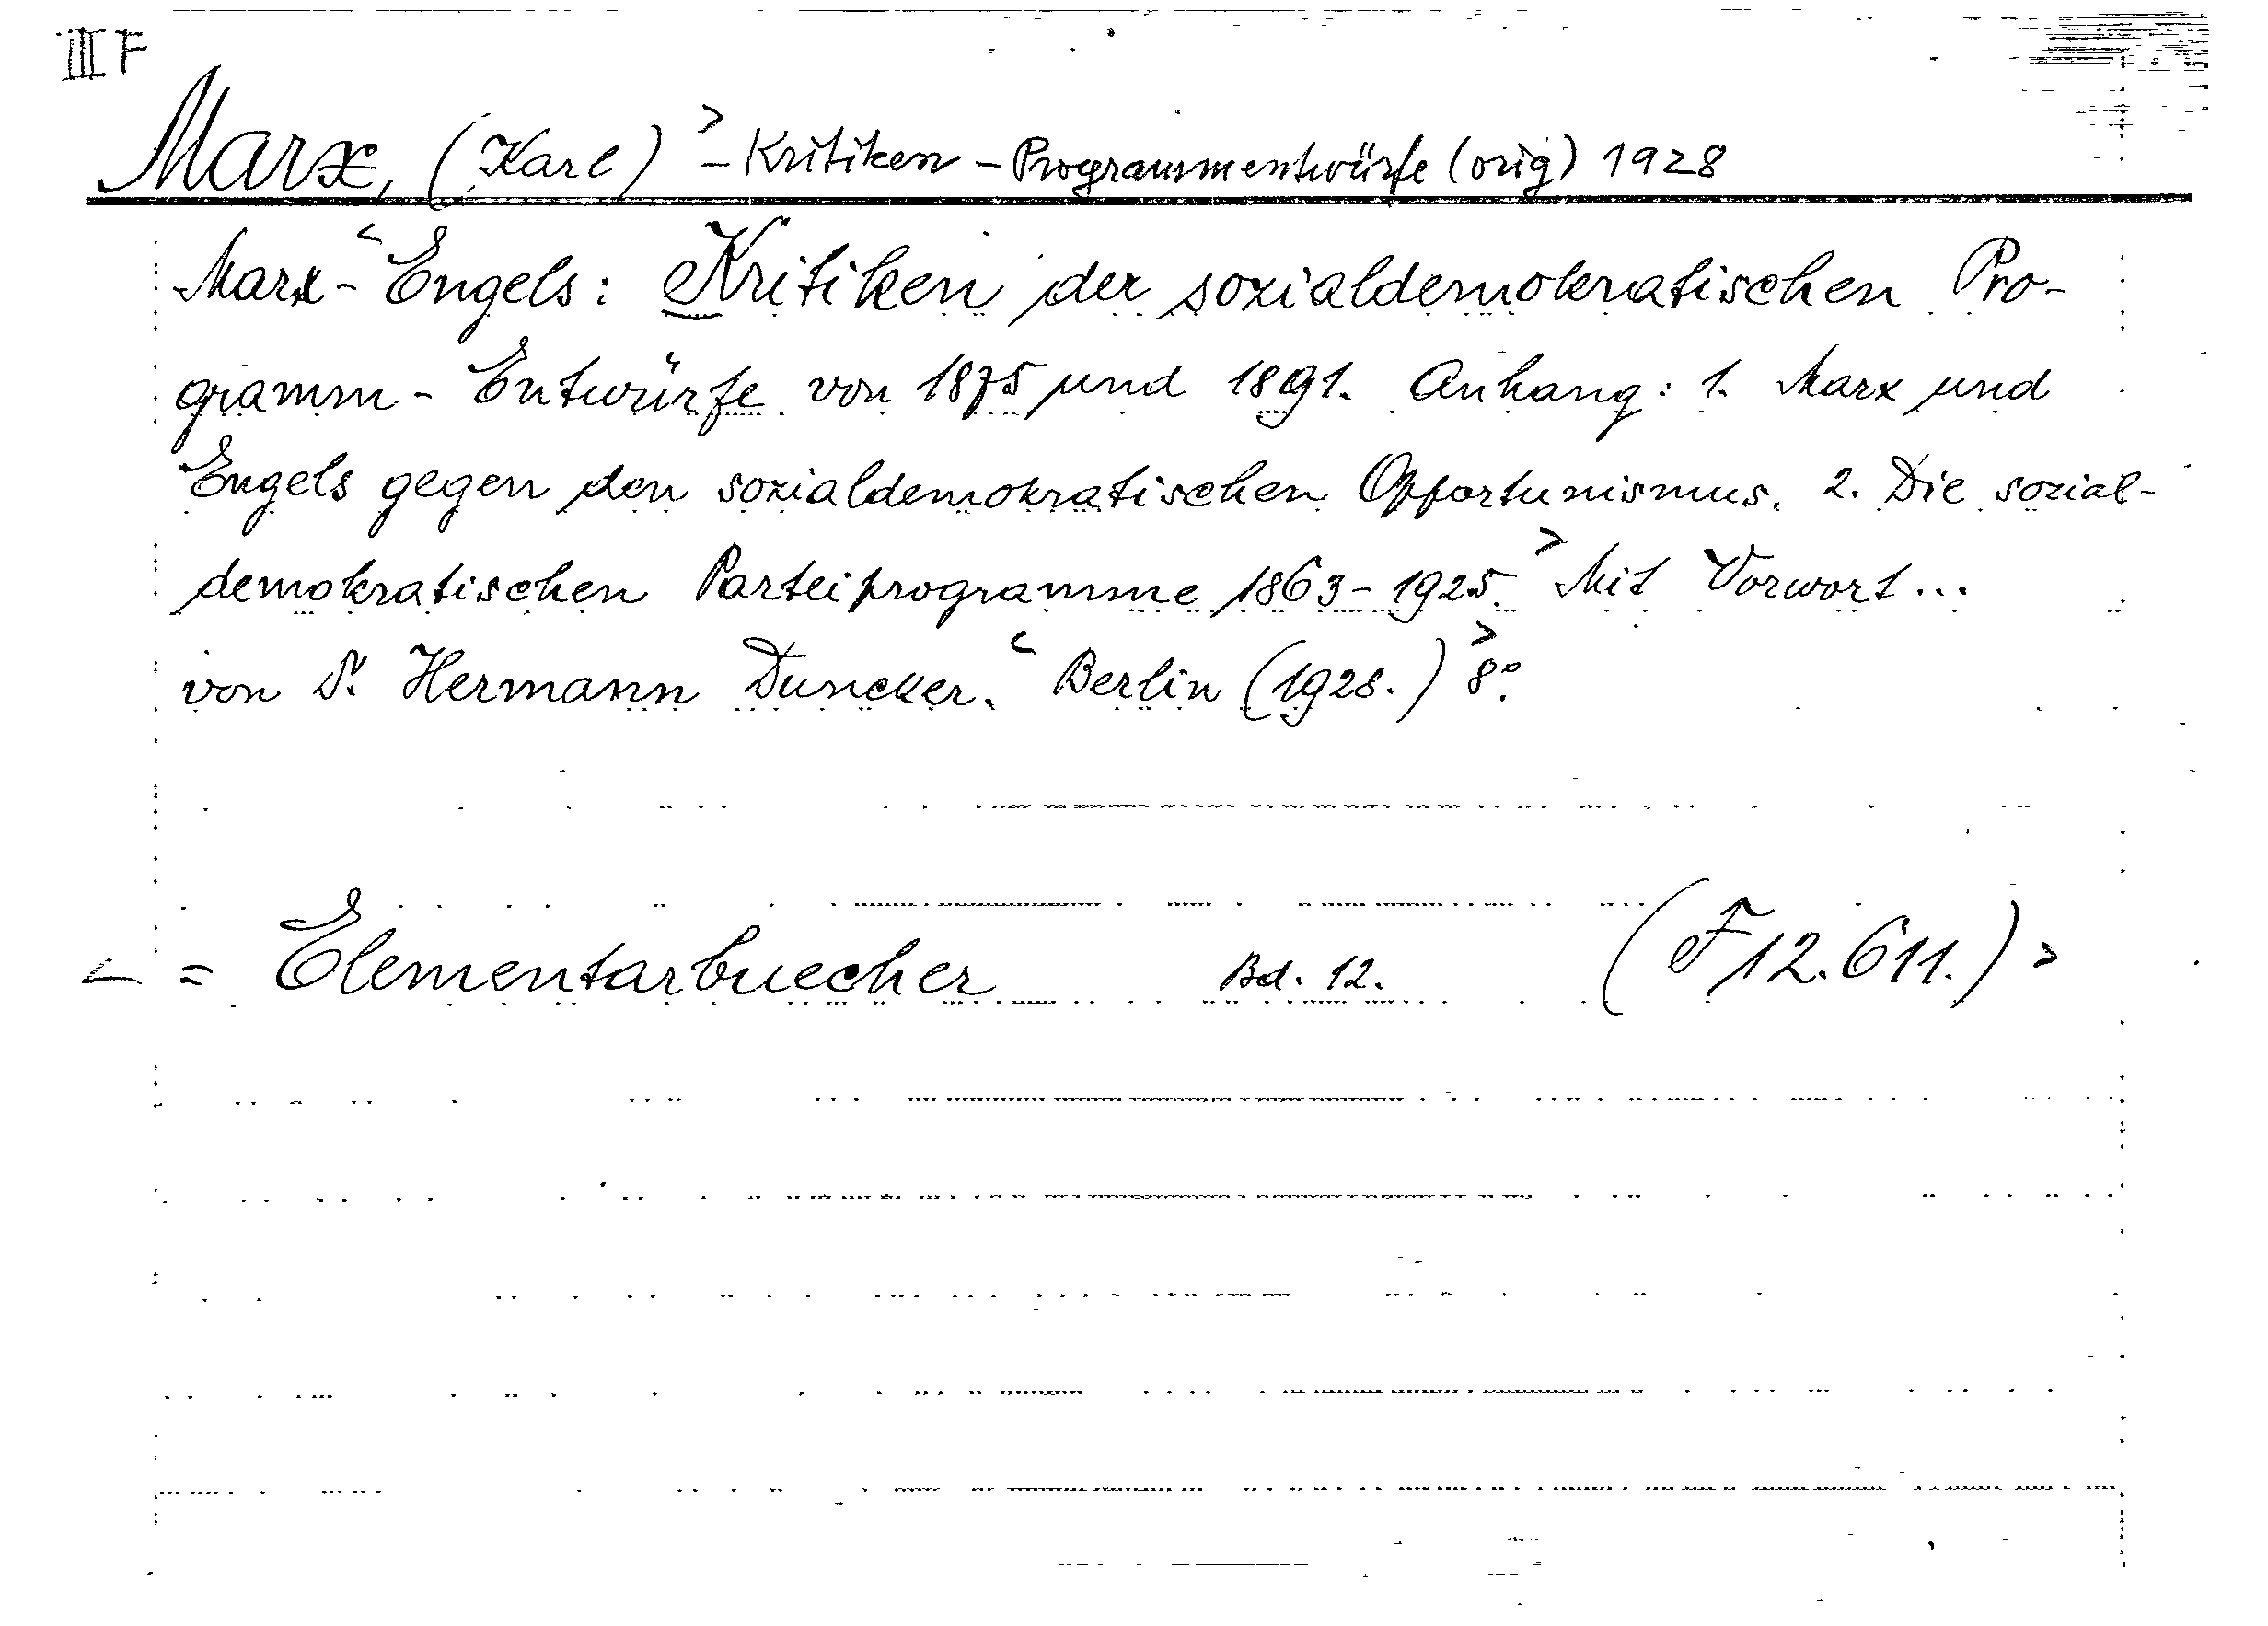 III F
Marx, (Karl) > - Kritiken - Programmentwürfe (orig) 1928
Marx-< Engels: Kritiken der sozialdemokratischen Pro-
gramm - Entwürfe von 1875 und 1891. Anhang: 1. Marx und
Engels gegen den sozialdemokratischen Opportunismus. 2. Die sozial-
demokratischen Parteiprogramme 1863-1925. > Mit Vorwort...
von Dr. Hermann Duncker. < Berlin (1928.) > 8°.
< = Elementarbuecher Bd. 12. (F 12.611.) >